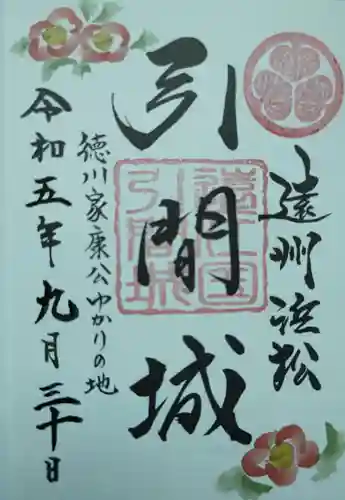 遠州浜松
引間城
遠江国
引間城
徳川家康公ゆかりの地
令和五年九月三十日